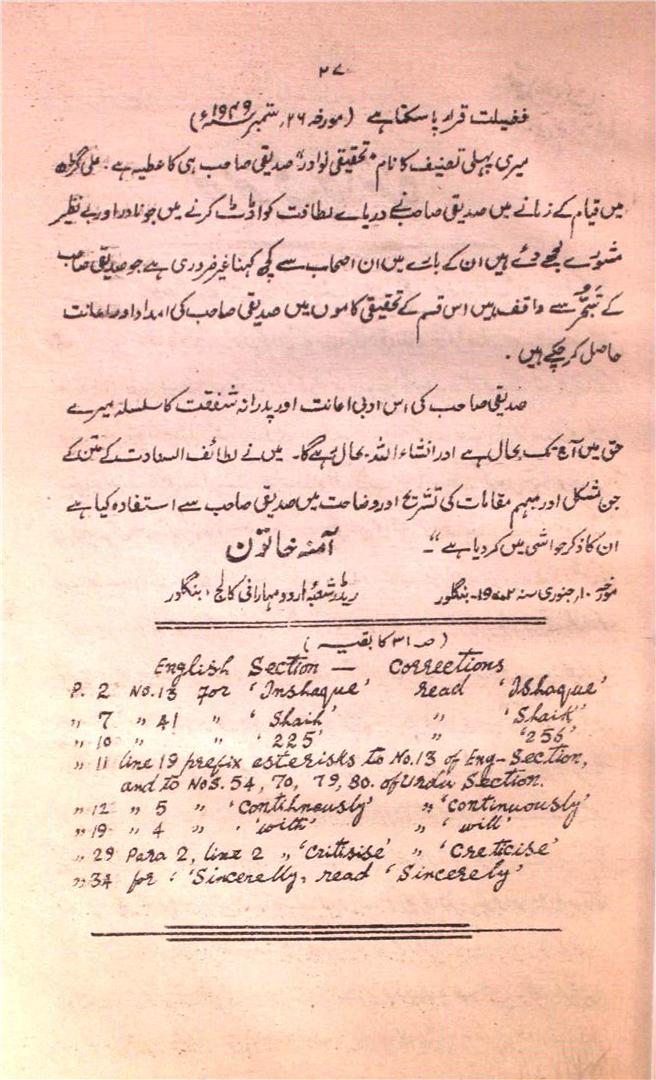 ۲۷
فضیلت قرار پا سکتا ہے (مورخہ ۲۶, ستمبر ۱۹۴۹ء)
میری پہلی تصنیف کا نام "تحقیقی نوادر" صدیقی صاحب ہی کا عطیہ ہے. علی گڑھ
میں قیام کے زمانے میں صدیقی صاحب نے دریاے لطافت کو اڈٹ کرنے میں جو نادر اور بے نظیر
مشورے مجھے دئے ہیں ان کے بارے میں ان اصحاب سے کچھ کہنا غیر ضروری ہے جو صدیقی صاحب
کے تبحّر سے واقف ہیں اس قسم کے تحقیقی کاموں میں صدیقی صاحب کی امداد اور اعانت
حاصل کر چکے ہیں .
صدیقی صاحب کی اس ادبی اعانت اور پدرانہ شفقت کا سلسلہ میرے
حق میں آج تک بحال ہے اور انشاء اللہ بحال رہے گا۔ میں نے لطائف السعادت کے متن کے
جن مشکل اور مبہم مقامات کی تشریح اور وضاحت میں صدیقی صاحب سے استفادہ کیا ہے
ان کا ذکر حواشی میں کر دیا ہے "۔ آمنہ خاتون
مورخہ ۱۰, جنوری سنہ ۲-۱۹ - بنگلور ریڈر شعبۂ اردو مہارانی کالج، بنگلور
(صہ ۳۱ کا بقیہ)
English Section — Corrections
P. 2 No.13 for 'Inshaque' read 'Ishaque'
" 7 " 41 " 'Shaih' " 'Shaik'
" 10 " " '225' " '256'
" 11 line 19 prefix asterisks to No.13 of Eng-Section,
and to Nos. 54, 70, 79, 80. of Urdu Section.
" 12 " 5 " 'Contihneously' " 'continuously'
" 19 " 4 " 'with' " 'will'
" 29 Para 2, line 2 " 'Critisise' " 'Creticise'
" 34 for ' 'Sincerelly, read 'Sincerely'